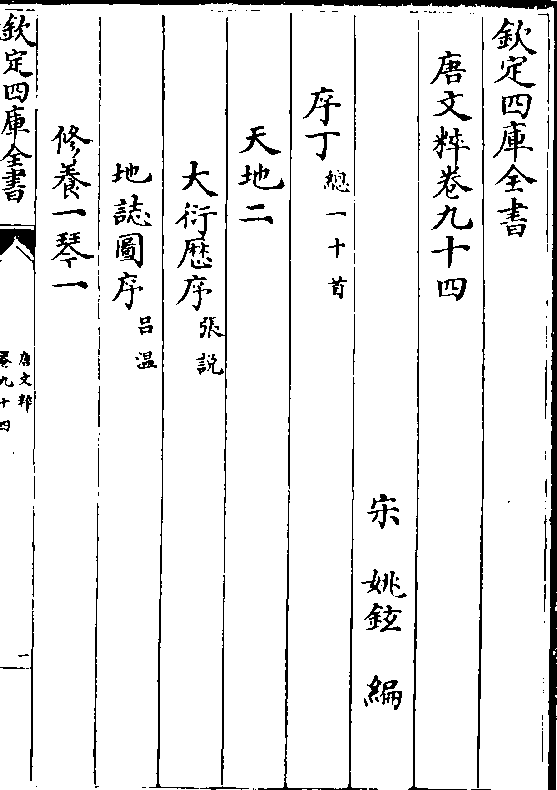 欽定四庫全書
唐文粹卷九十四
宋 姚鉉 編
序丁總一十首
天地二
大衍厯序張説
地誌圖序吕温
修養一琴一
欽定四庫全書
唐文粹
卷九十四
一